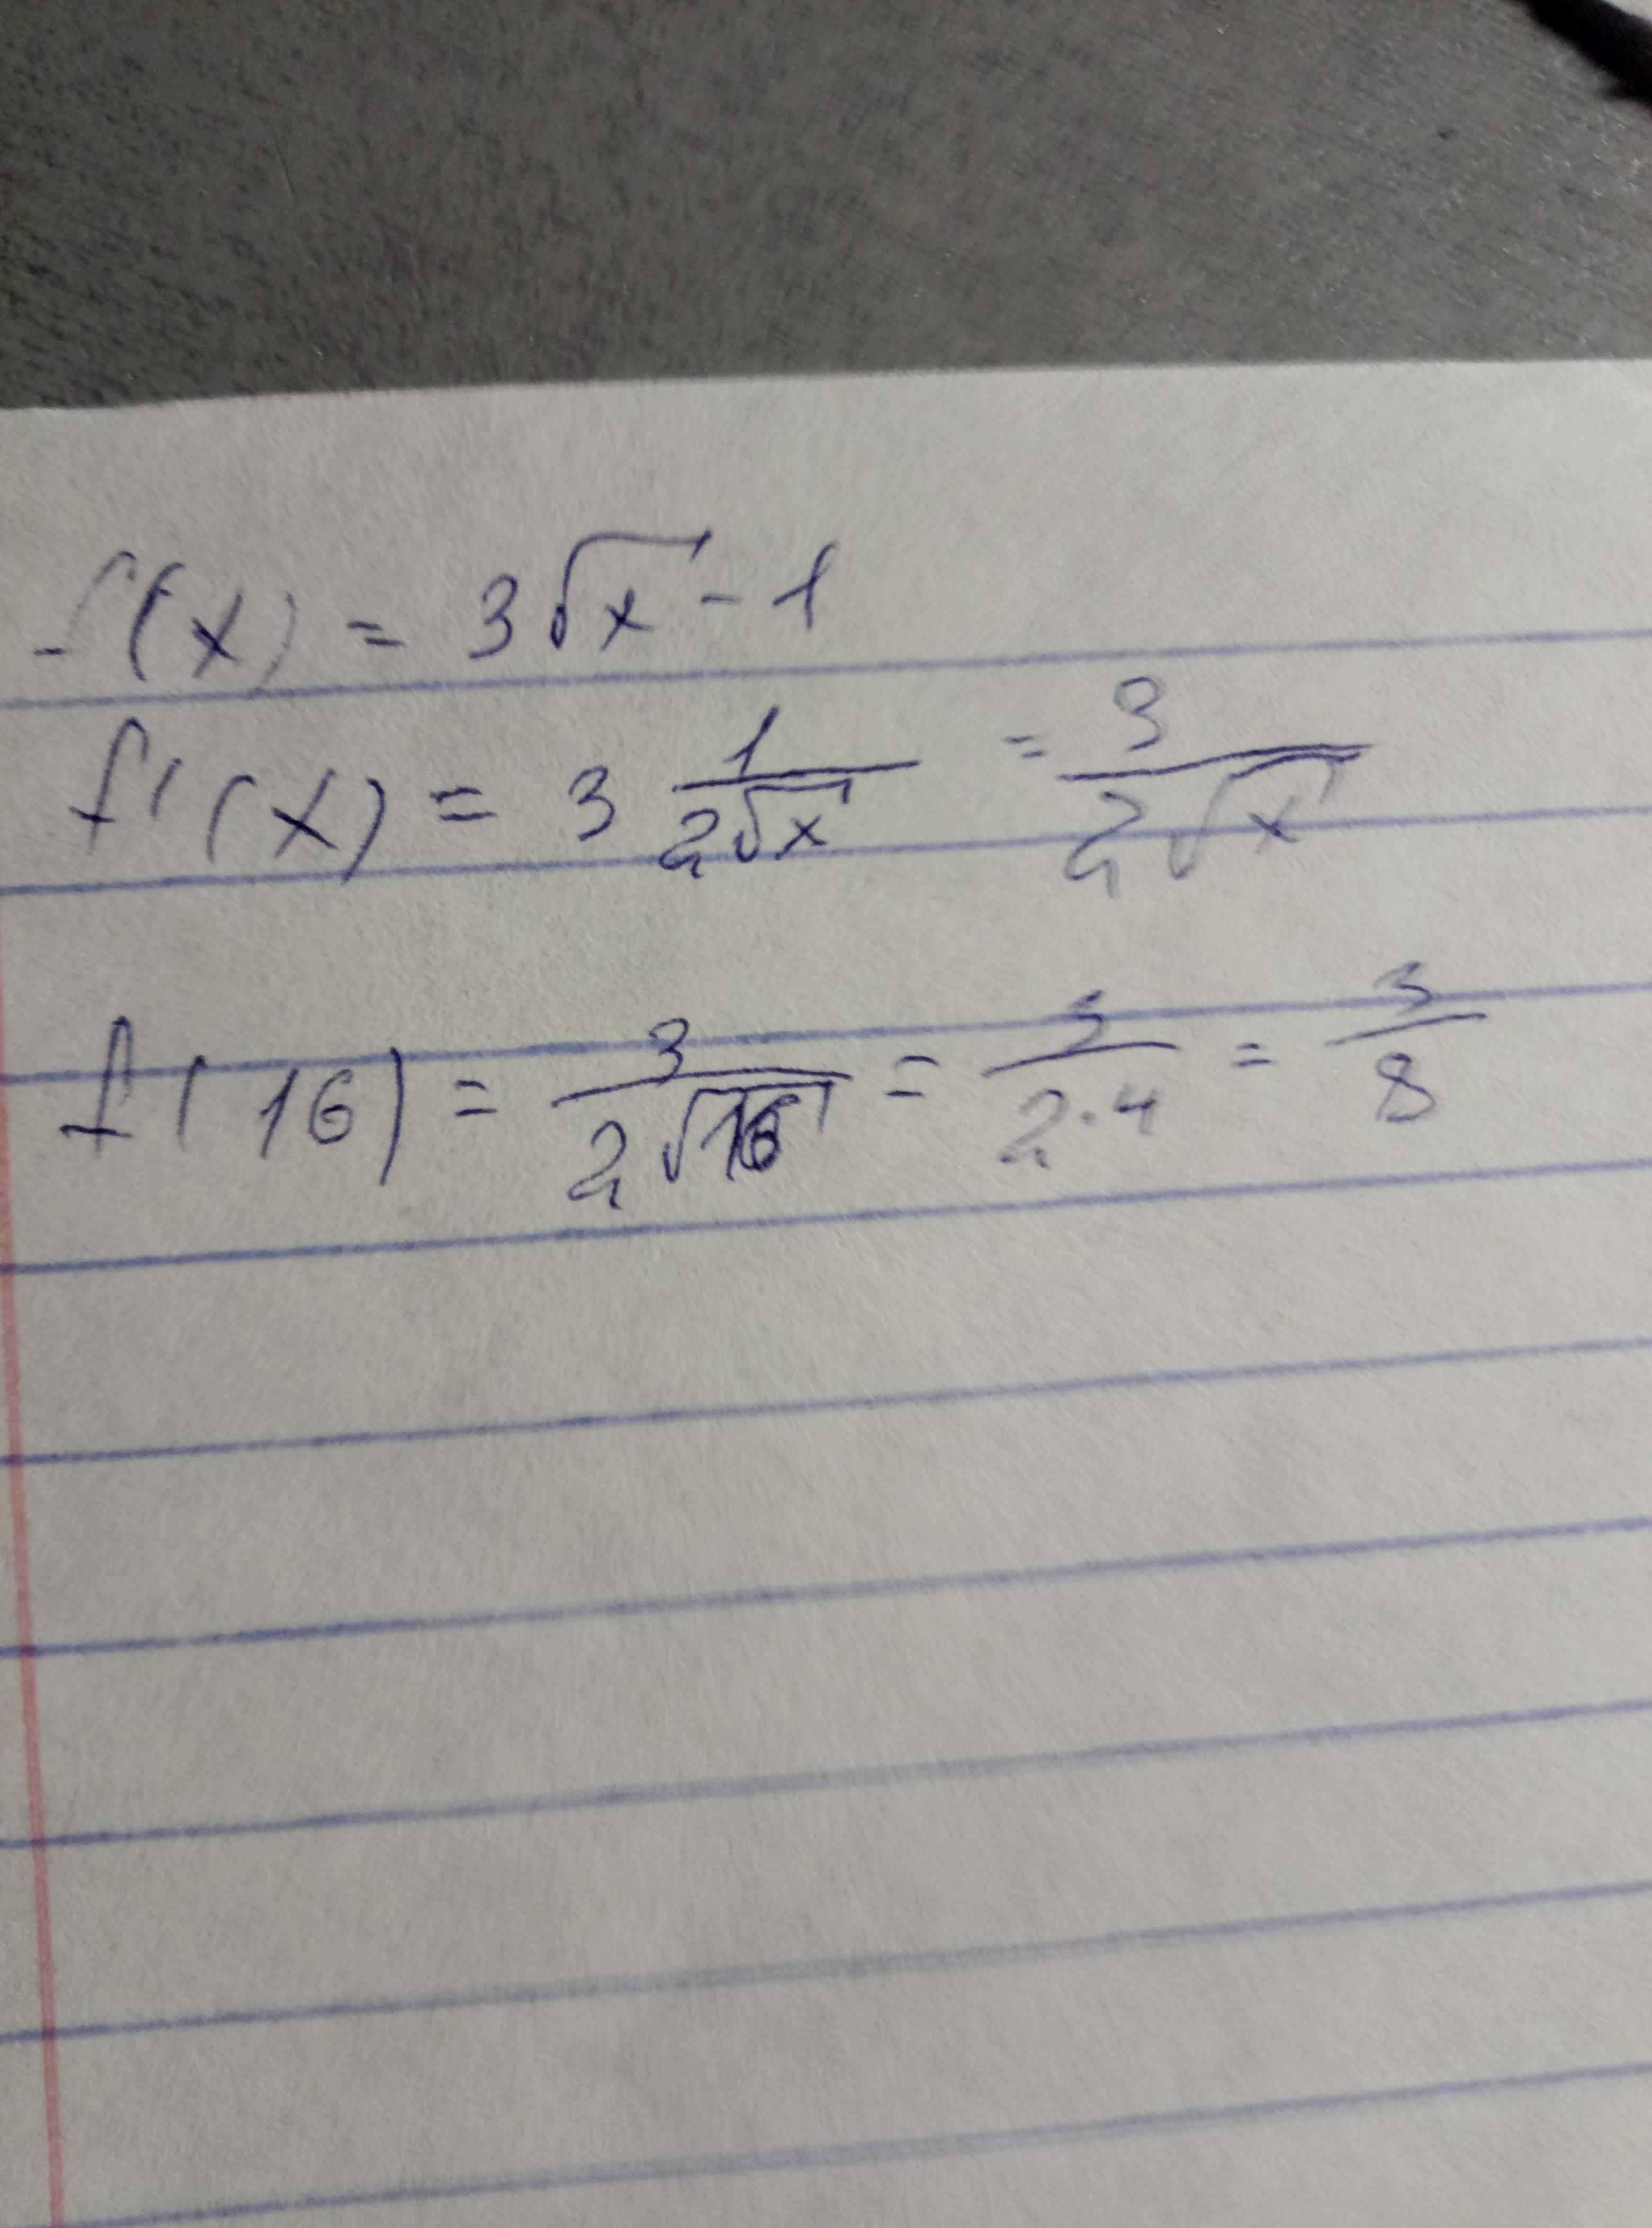 f(x) = 3√x - 1
f'(x) = 3 1/(2√x) = 3/(2√x)
f(16) = 3/(2√16) = 3/(2·4) = 3/8